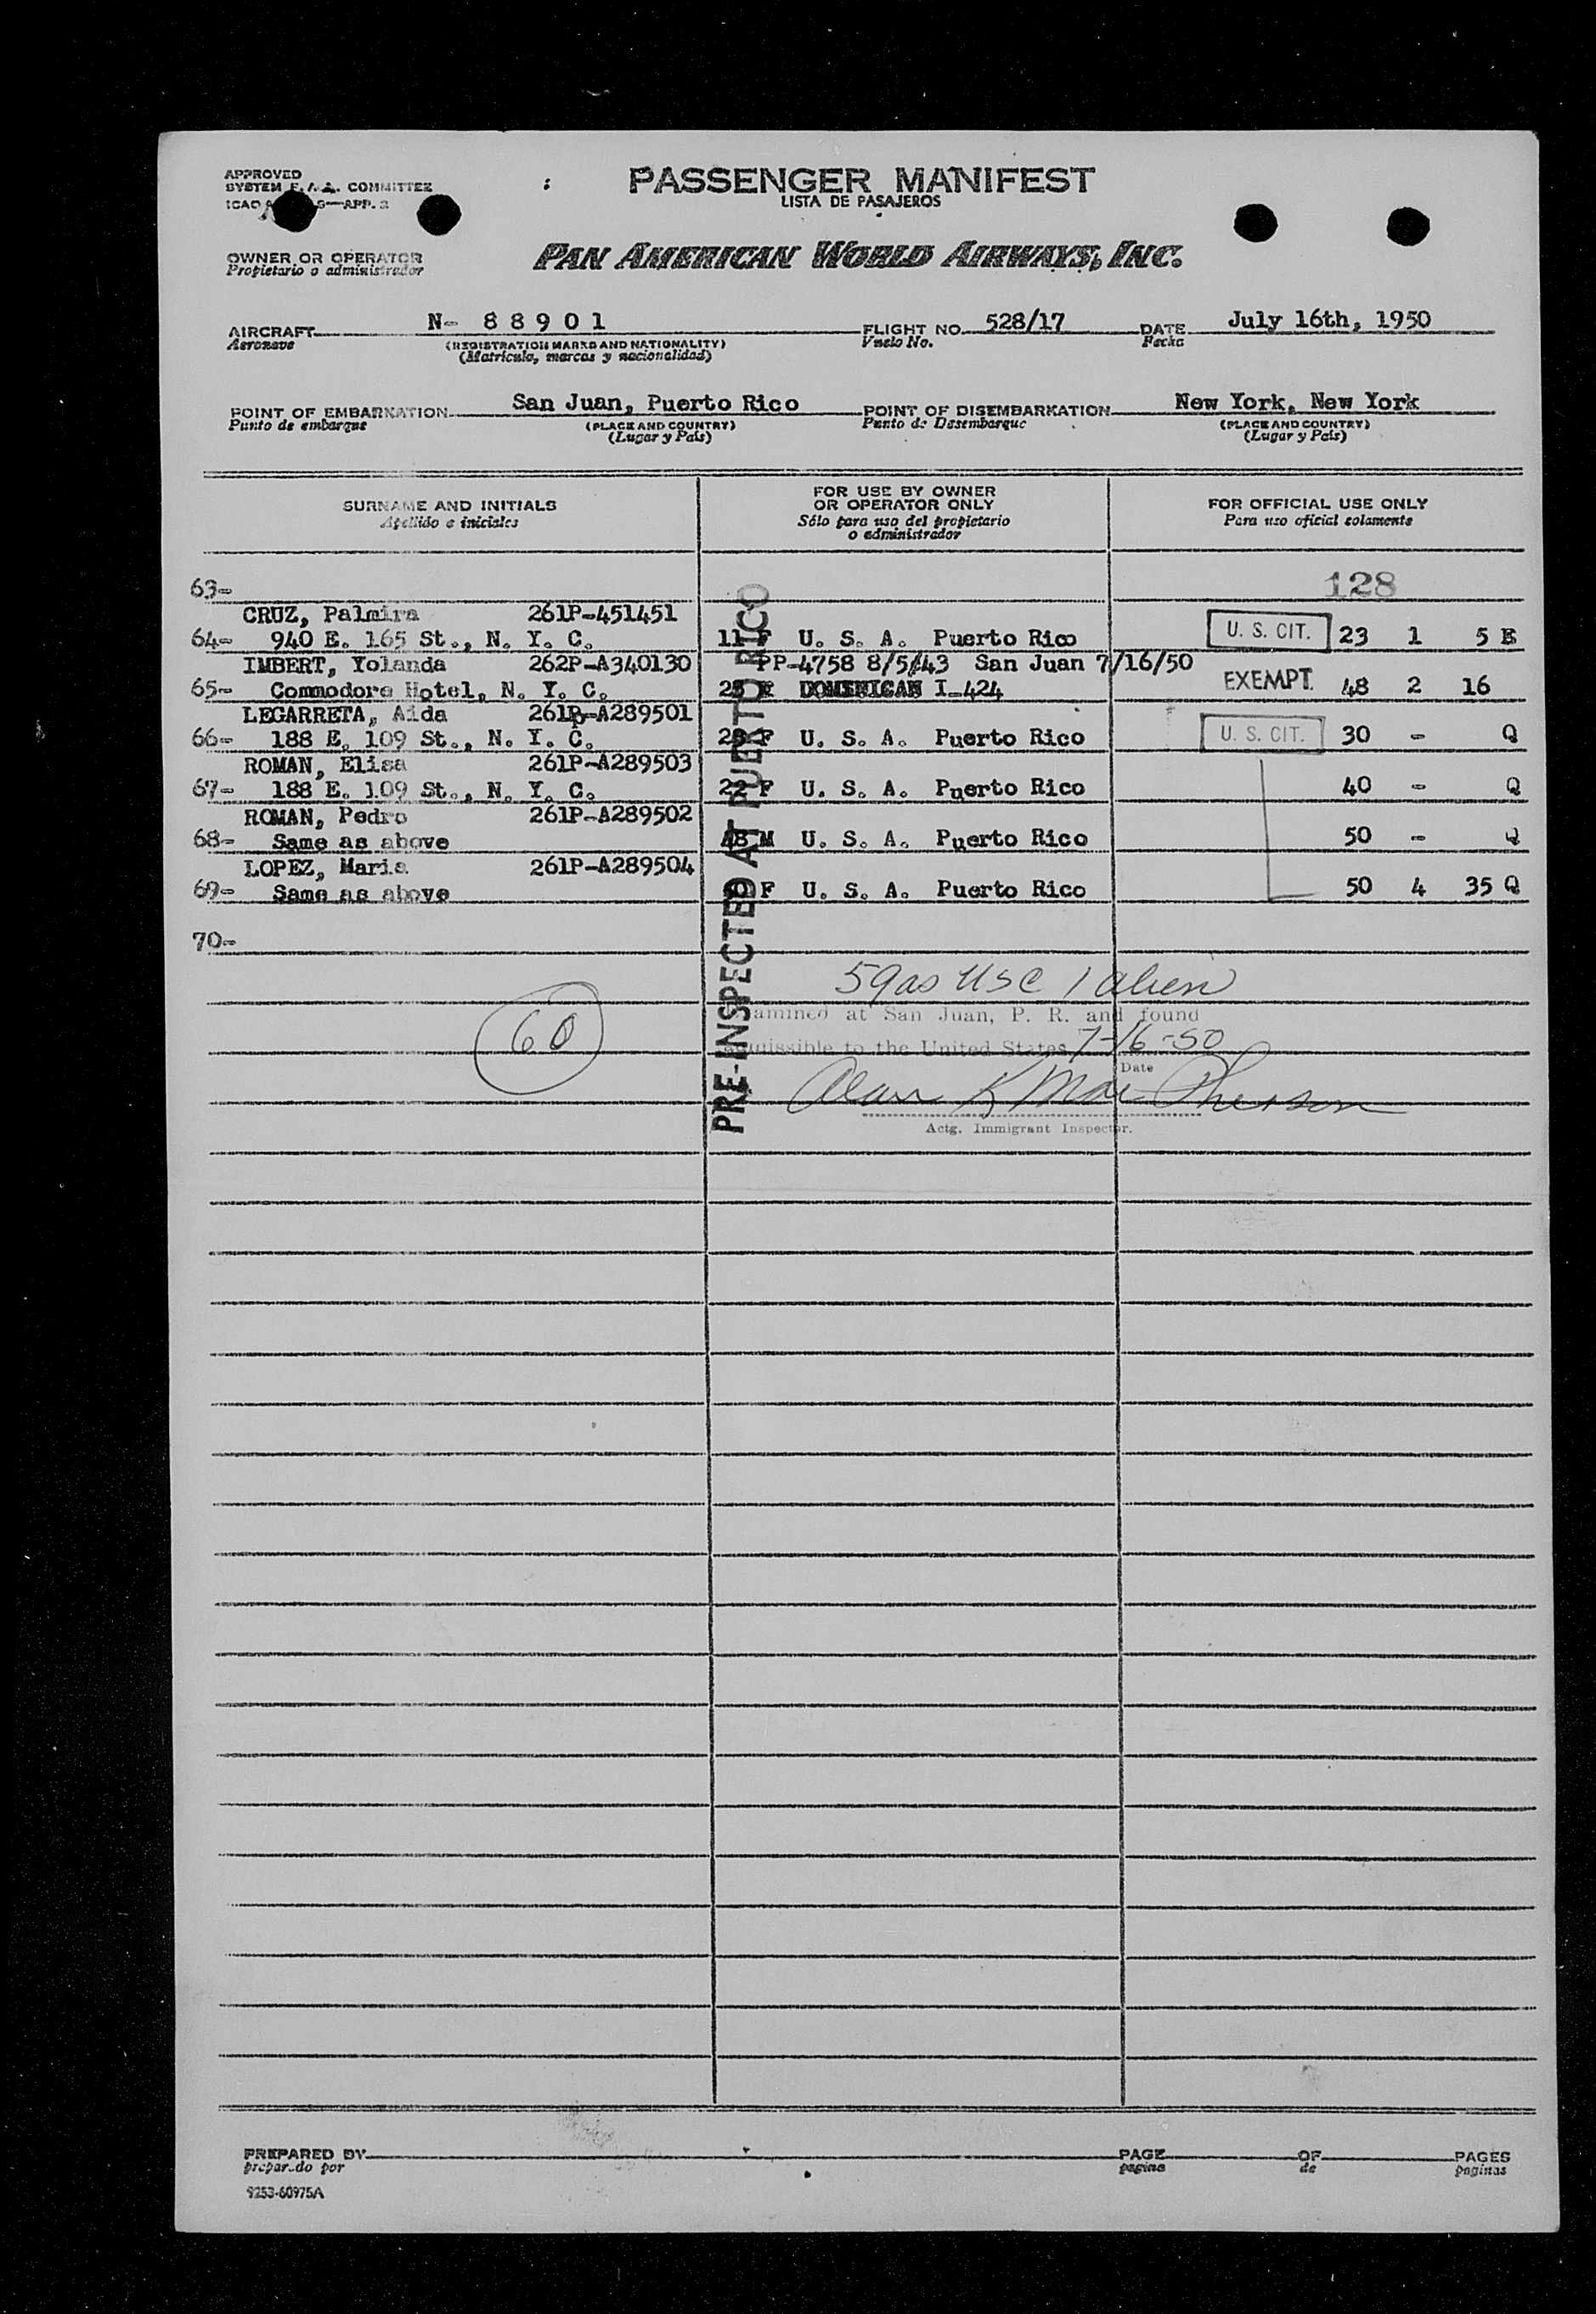 APPROVED
SYSTEM COMMITTEE
ICAO APP. 2
PASSENGER MANIFEST
LISTA DE PASAJEROS
OWNER OR OPERATOR
Propietario o administrador
PAN AMERICAN WORLD AIRWAYS, INC.
AIRCRAFT N- 88901 FLIGHT NO. 528/17 DATE July 16th, 1950
Aeronave (REGISTRATION MARKS AND NATIONALITY) Vuelo No. Fecha
(Matricula, marcas y nacionalidad)
POINT OF EMBARKATION San Juan, Puerto Rico POINT OF DISEMBARKATION New York, New York
Punto de embarque (PLACE AND COUNTRY) Punto de Desembarque (PLACE AND COUNTRY)
(Lugar y País) (Lugar y País)
SURNAME AND INITIALS
Apellido e iniciales
FOR USE BY OWNER
OR OPERATOR ONLY
Sólo para uso del propietario
o administrador
FOR OFFICIAL USE ONLY
Para uso oficial solamente
63- 128
CRUZ, Palmira 261P-451451
64- 940 E. 165 St., N. Y. C. 11 F U. S. A. Puerto Rico U. S. CIT. 23 1 5 E
IMBERT, Yolanda 262P-A340130 PP-4758 8/5/43 San Juan 7/16/50
65- Commodore Hotel, N. Y. C. DOMINICAN I-424 EXEMPT. 48 2 16
LEGARRETA, Aida 261P-A289501
66- 188 E. 109 St., N. Y. C. F U. S. A. Puerto Rico U. S. CIT. 30 - Q
ROMAN, Elisa 261P-A289503
67- 188 E. 109 St., N. Y. C. 22 F U. S. A. Puerto Rico 40 - Q
ROMAN, Pedro 261P-A289502
68- Same as above M U. S. A. Puerto Rico 50 - Q
LOPEZ, Maria 261P-A289504
69- Same as above F U. S. A. Puerto Rico 50 4 35 Q
70-
PRE-INSPECTED AT PUERTO RICO
59 as USC 1 alien
60
amined at San Juan, P. R. and found
admissible to the United States 7-16-50
Date
Alan K MacPherson
Actg. Immigrant Inspector.
PREPARED BY PAGE OF PAGES
preparado por pagina de paginas
9253-60975A